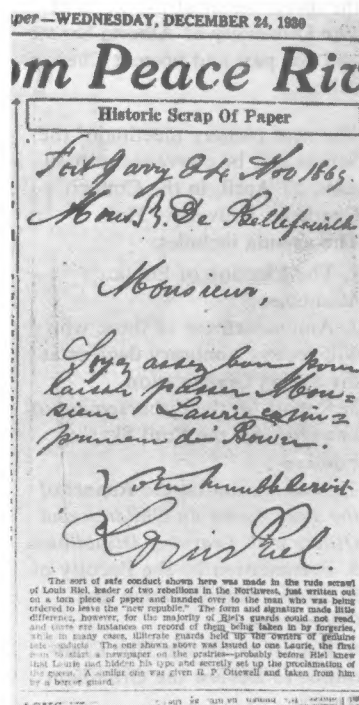 aper—WEDNESDAY, DECEMBER 24, 1930
om Peace Riv
Historic Scrap Of Paper
Fort Garry 24 Nov 1869
Mons. R. De Bellefeuille
Monsieur,
Soyez assez bon pour
laisser passer Mon=
sieur Laurie im=
primeur de Bown.
Votre humble Servit
Louis Riel.
The sort of safe conduct shown here was made in the rude scrawl
of Louis Riel, leader of two rebellions in the Northwest, just written out
on a torn piece of paper and handed over to the man who was being
ordered to leave the "new republic." The form and signature made little
difference, however, for the majority of Riel's guards could not read,
and there are instances on record of them being taken in by forgeries,
while in many cases, illiterate guards held up the owners of genuine
safe-conducts. The one shown above was issued to one Laurie, the first
man to start a newspaper on the prairies—probably before Riel knew
that Laurie had hidden his type and secretly set up the proclamation of
the queen. A similar one was given R. P. Ottewell and taken from him
by a border guard.